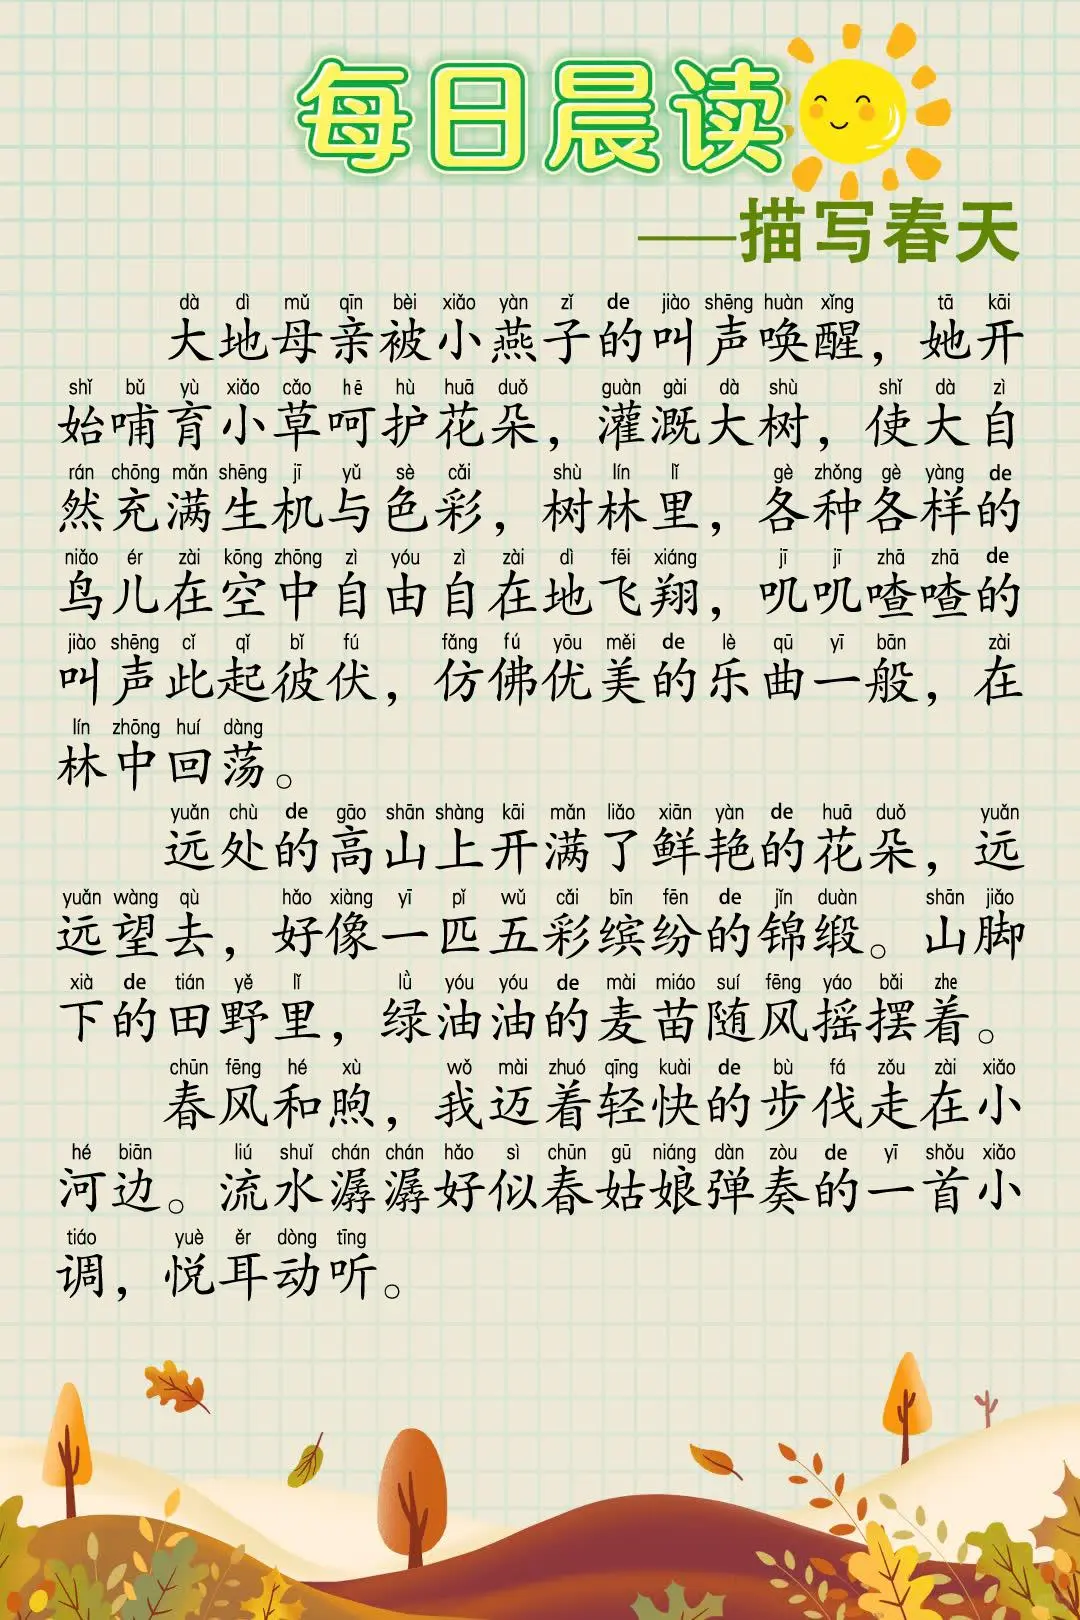 每日晨读
——描写春天
dà dì mǔ qīn bèi xiǎo yàn zǐ de jiào shēng huàn xǐng tā kāi
大地母亲被小燕子的叫声唤醒，她开
shǐ bǔ yù xiǎo cǎo hē hù huā duǒ guàn gài dà shù shǐ dà zì
始哺育小草呵护花朵，灌溉大树，使大自
rán chōng mǎn shēng jī yǔ sè cǎi shù lín lǐ gè zhǒng gè yàng de
然充满生机与色彩，树林里，各种各样的
niǎo ér zài kōng zhōng zì yóu zì zài dì fēi xiáng jī jī zhā zhā de
鸟儿在空中自由自在地飞翔，叽叽喳喳的
jiào shēng cǐ qǐ bǐ fú fǎng fú yōu měi de lè qū yī bān zài
叫声此起彼伏，仿佛优美的乐曲一般，在
lín zhōng huí dàng
林中回荡。
yuǎn chù de gāo shān shàng kāi mǎn liǎo xiān yàn de huā duǒ yuǎn
远处的高山上开满了鲜艳的花朵，远
yuǎn wàng qù hǎo xiàng yī pǐ wǔ cǎi bīn fēn de jǐn duàn shān jiǎo
远望去，好像一匹五彩缤纷的锦缎。山脚
xià de tián yě lǐ lǜ yóu yóu de mài miáo suí fēng yáo bǎi zhe
下的田野里，绿油油的麦苗随风摇摆着。
chūn fēng hé xù wǒ mài zhuó qīng kuài de bù fá zǒu zài xiǎo
春风和煦，我迈着轻快的步伐走在小
hé biān liú shuǐ chán chán hǎo sì chūn gū niáng dàn zòu de yī shǒu xiǎo
河边。流水潺潺好似春姑娘弹奏的一首小
tiáo yuè ěr dòng tīng
调，悦耳动听。